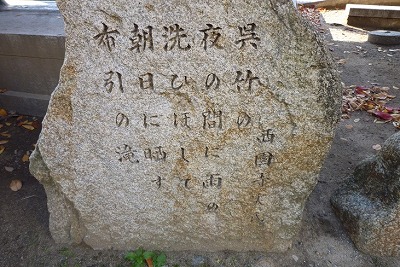 呉竹の
夜の間に雨の
洗ひほして
朝日に晒す
布引の滝